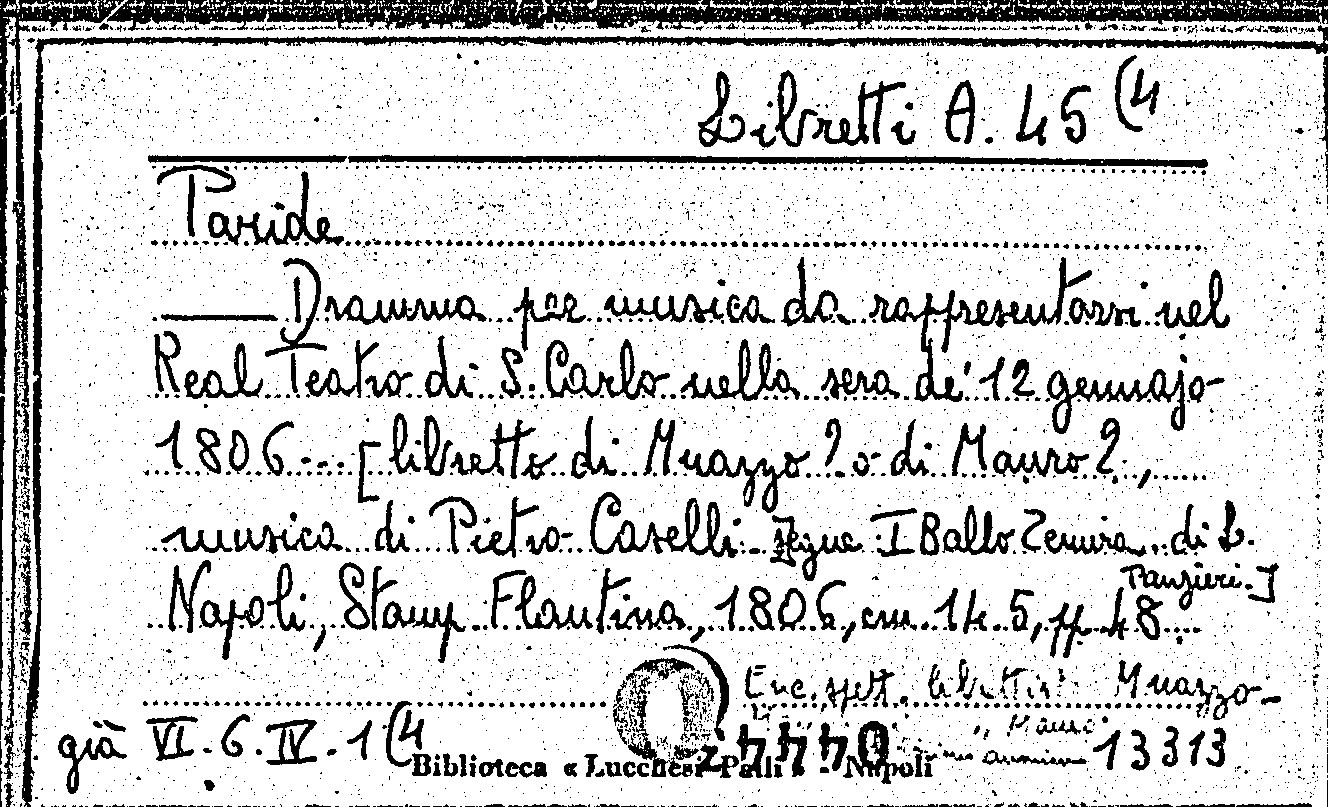 Libretti A. 45 (4
Paride
Dramma per musica da rappresentarsi nel
Real Teatro di S. Carlo nella sera de' 12 gennajo
1806... [libretto di Muazzo? o di Mauro?,
musica di Pietro Caselli. Segue I Ballo Zemira di L.
Panzieri.]
Napoli, Stamp. Flautina, 1806, cm. 14.5, pp 48.
Enc. spett. Muazzo
" Mauro
già VI. 6. IV. 1 (4
13313
Biblioteca « Lucchesi Palli » - Napoli